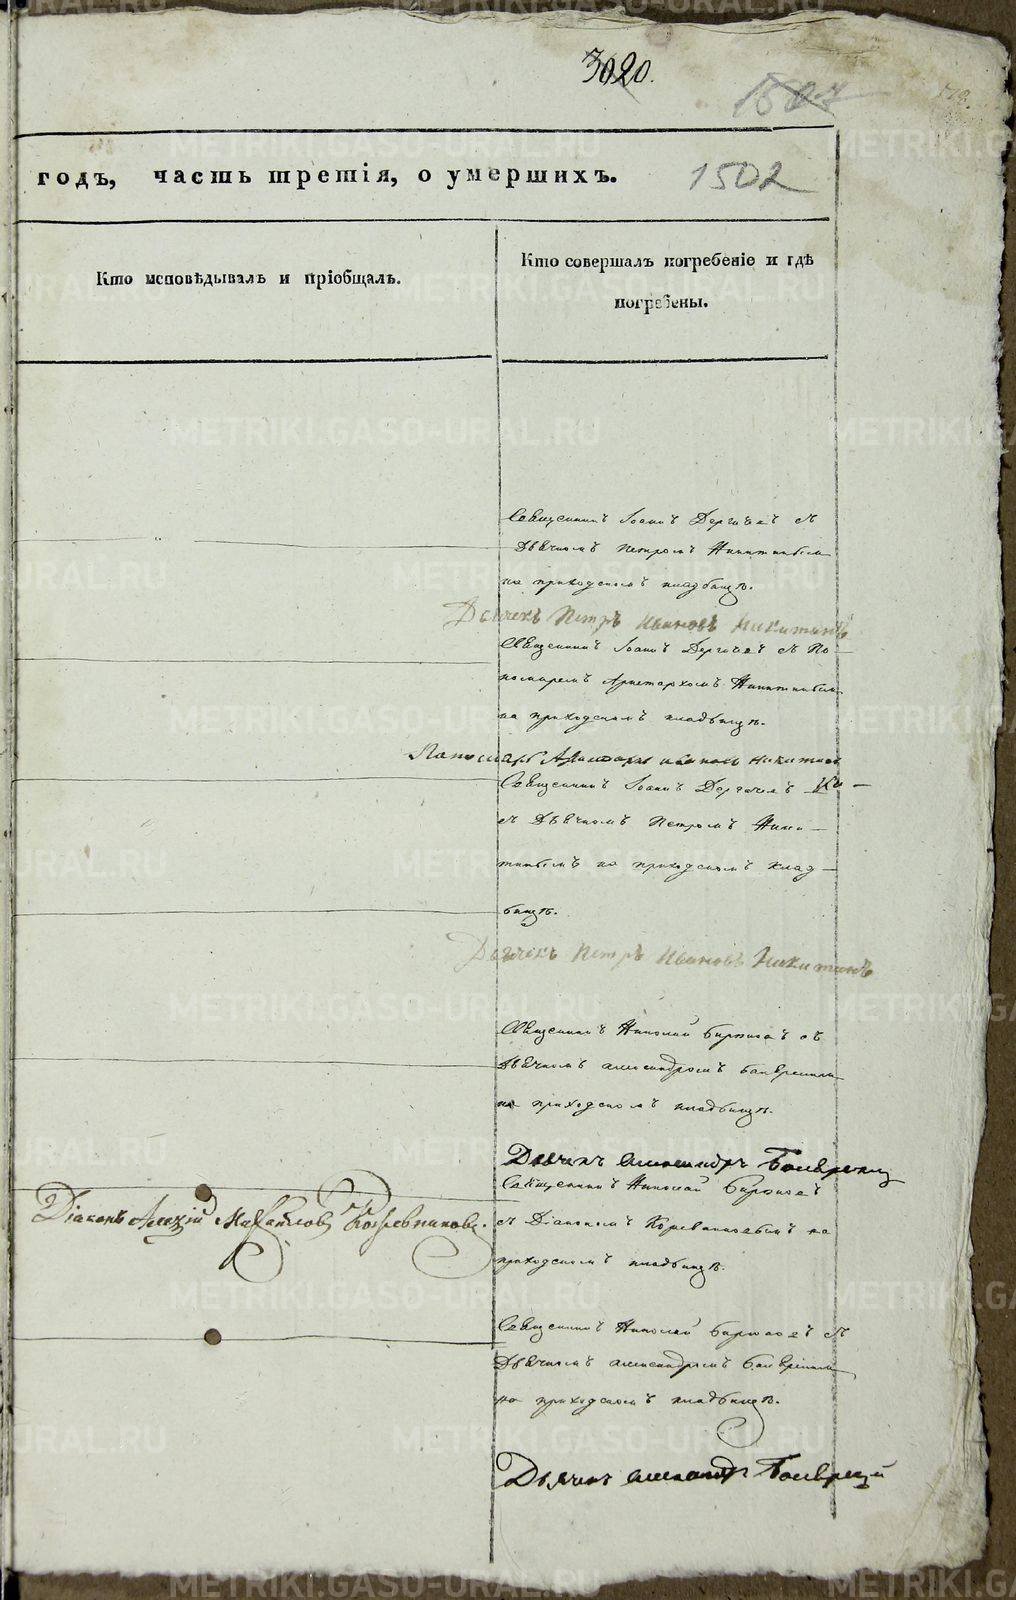 3020.
1507
1502
годъ, часть третія, о умершихъ.
Кто исповѣдывалъ и пріобщалъ.
Кто совершалъ погребеніе и гдѣ
погребены.
Священникъ Іоаннъ Дергачевъ съ
Дьячкомъ Петромъ Никитинымъ
на приходскомъ кладбищѣ.
Дьячекъ Петръ Ивановъ Никитинъ
Священникъ Іоаннъ Дергачевъ съ По-
номаремъ Аристархомъ Никитинымъ
на приходскомъ кладбищѣ.
Пономарь Аристархъ Ивановъ Никитинъ
Священникъ Іоаннъ Дергачевъ
съ Дьячкомъ Петромъ Ники-
тинымъ на приходскомъ клад-
бищѣ.
Дьячекъ Петръ Ивановъ Никитинъ
Священникъ Николай Бирюковъ съ
Дьячкомъ Александромъ
на приходскомъ кладбищѣ.
Дьячекъ Александръ
Священникъ Николай Бирюковъ
съ Діакономъ Кожевниковымъ на
приходскомъ кладбищѣ.
Діаконъ Алексій Михайловъ Кожевниковъ.
Священникъ Николай Бирюковъ съ
Дьячкомъ Александромъ
на приходскомъ кладбищѣ.
Дьячекъ Александръ
METRIKI.GASO-URAL.RU